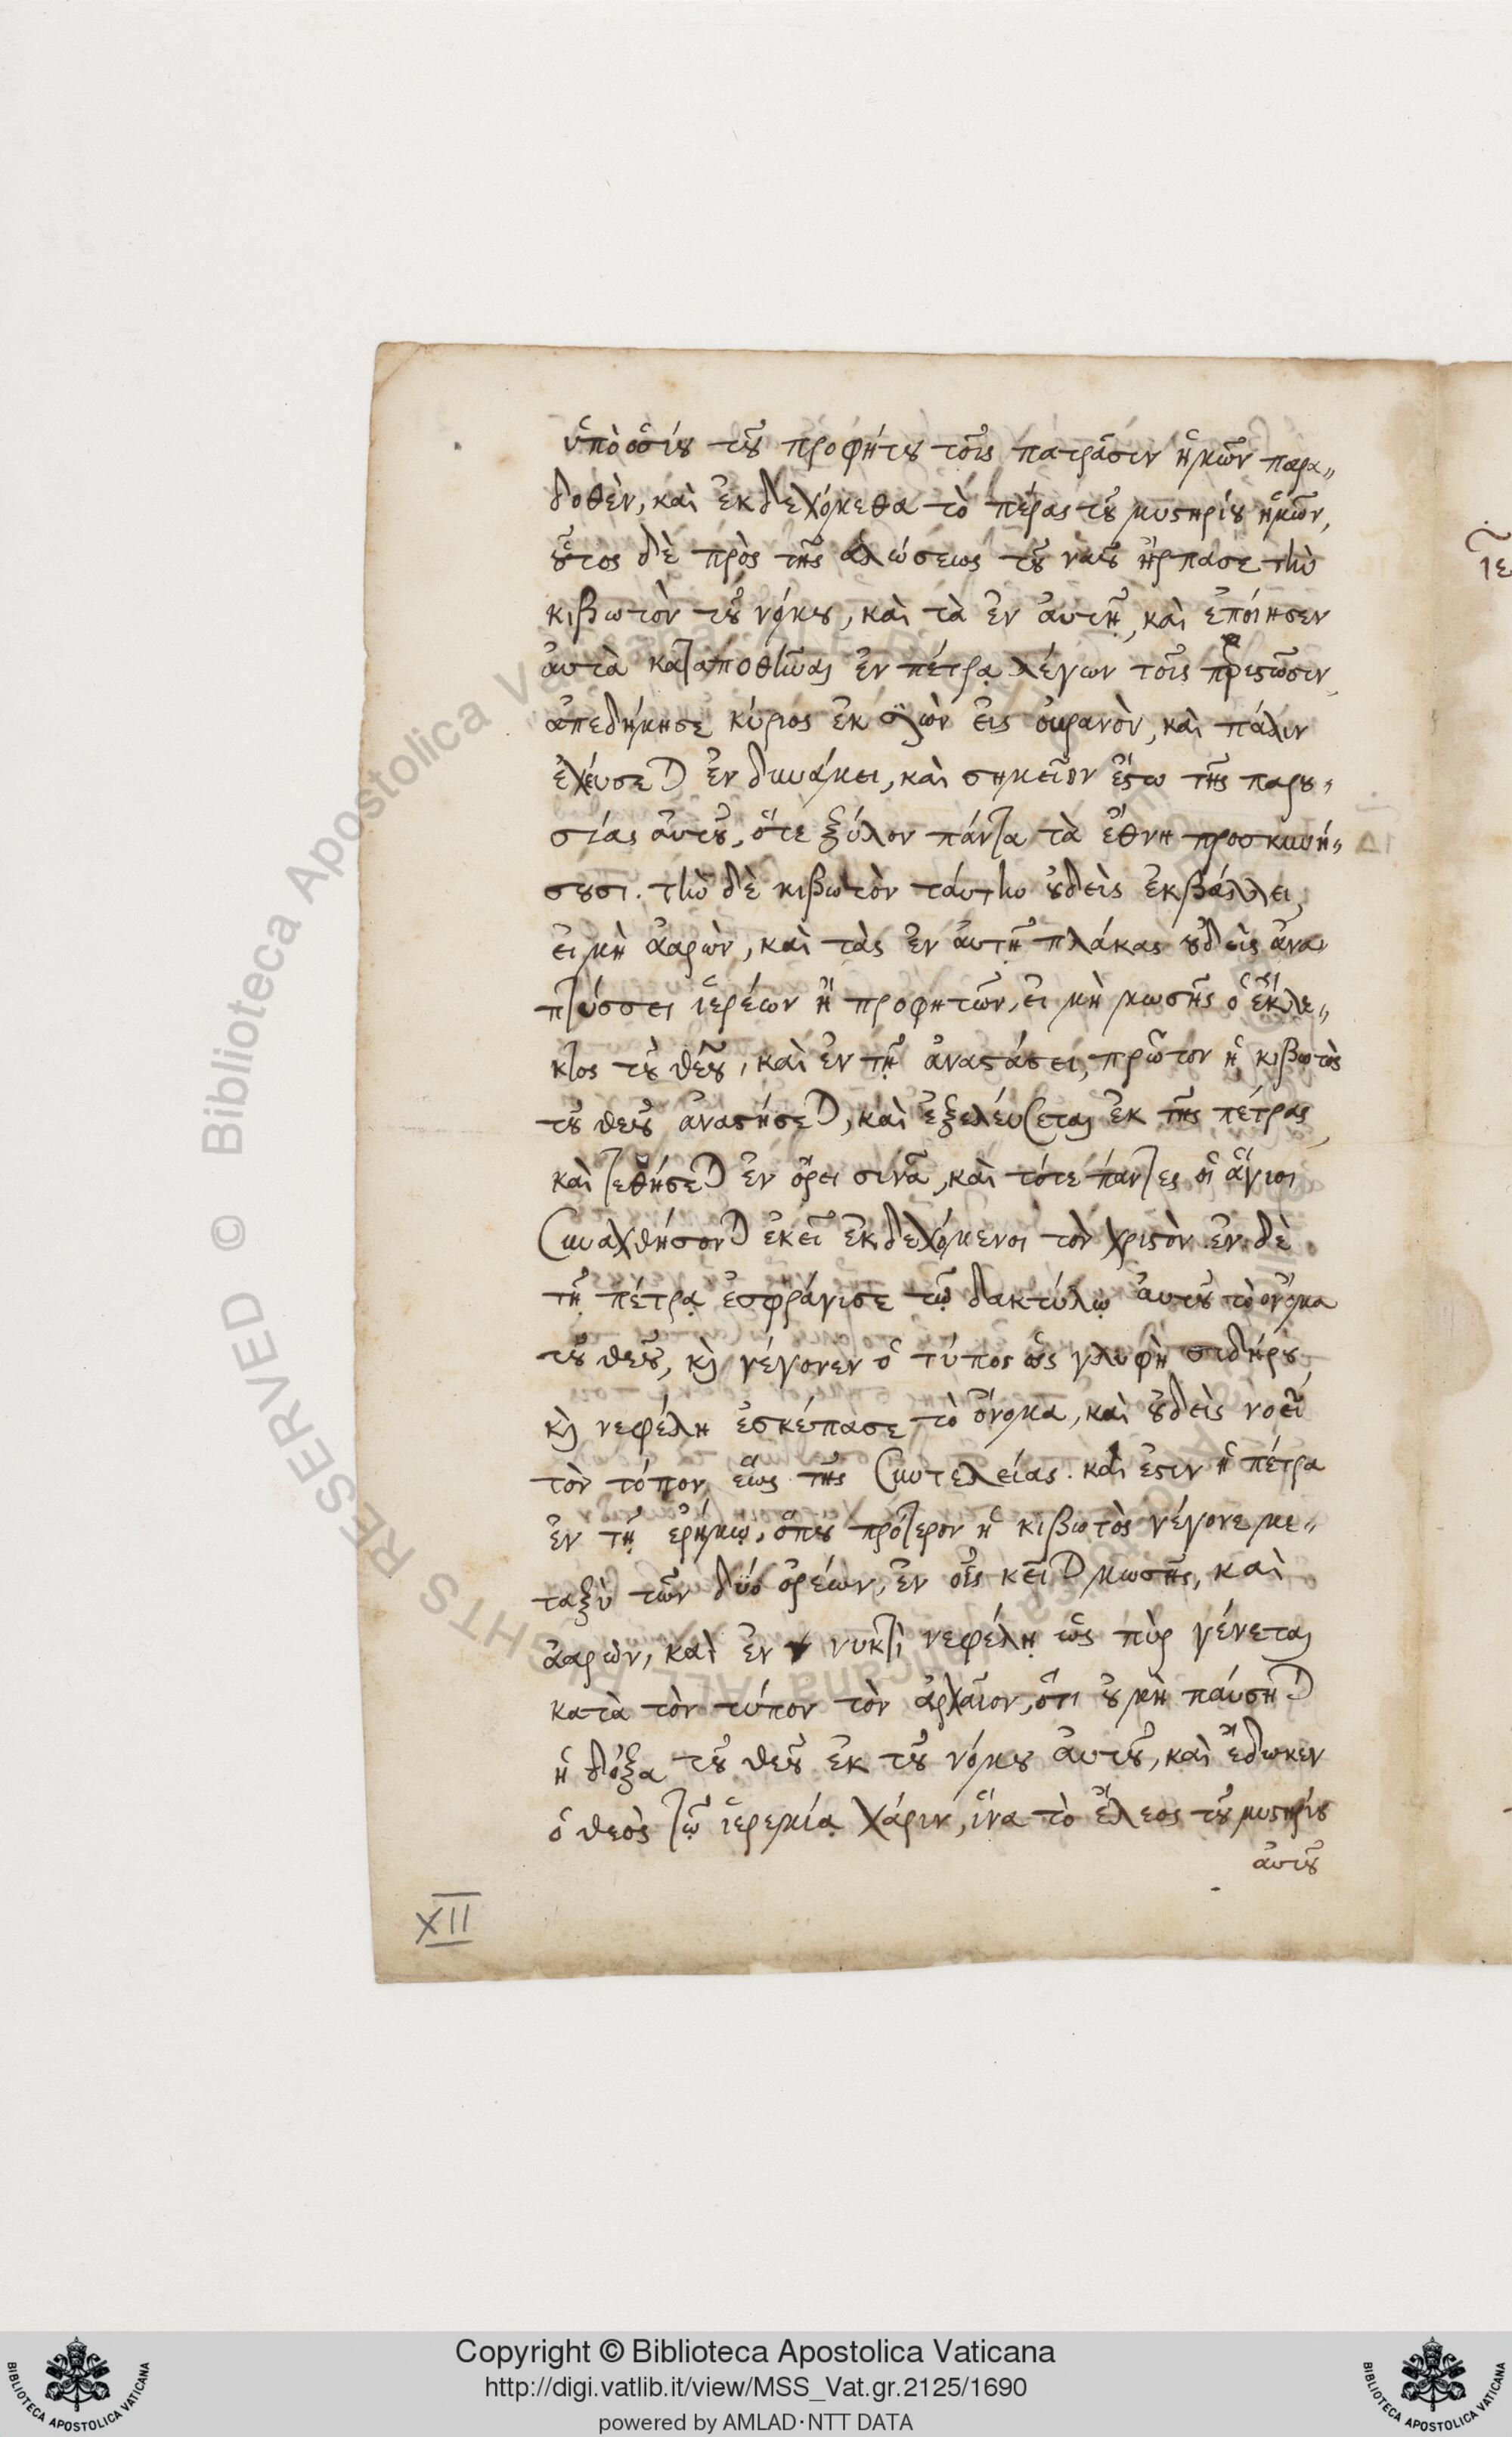 ὑπὸ ὁσίου τοῦ προφήτου τοῖς πατράσιν ἡμῶν παρα„
δοθὲν, καὶ ἐκδεχόμεθα τὸ πέρας τοῦ μυστηρίου ἡμῶν,
οὗτος δὲ πρὸς τῆς ἁλώσεως τοῦ ναοῦ ἥρπασε τὴν
κιβωτὸν τοῦ νόμου, καὶ τὰ ἐν αὐτῇ, καὶ ἐποίησεν
αὐτὰ καταποθῆναι ἐν πέτρᾳ λέγων τοῖς παρεστῶσιν,
ἀπεδήμησε κύριος ἐκ σιὼν εἰς οὐρανὸν, καὶ πάλιν
ἐλεύσεται ἐν δυνάμει, καὶ σημεῖον ἔστω τῆς παρου„
σίας αὐτοῦ, ὅτε ξύλον πάντα τὰ ἔθνη προσκυνή„
σουσι. τὴν δὲ κιβωτὸν ταύτην οὐδεὶς ἐκβάλλει,
εἰ μὴ ἀαρὼν, καὶ τὰς ἐν αὐτῇ πλάκας οὐδεὶς ἀνα„
πτύσσει ἱερέων ἢ προφητῶν, εἰ μὴ μωσῆς ὁ ἐκλε„
κτος τοῦ θεοῦ, καὶ ἐν τῇ ἀναστάσει, πρῶτον ἡ κιβωτὸς
τοῦ θεοῦ ἀναστήσεται, καὶ ἐξελεύσεται ἐκ τῆς πέτρας,
καὶ τεθήσεται ἐν ὄρει σινᾶ, καὶ τότε πάντες οἱ ἅγιοι
συναχθήσονται ἐκεῖ ἐκδεχόμενοι τὸν χριστὸν. ἐν δὲ
τῇ πέτρᾳ ἐσφράγισε τῷ δακτύλῳ αὐτοῦ τὸ ὄνομα
τοῦ θεοῦ, κὶ γέγονεν ὁ τύπος ὡς γλυφὴ σιδήρου,
κὶ νεφέλη ἐσκέπασε τὸ ὄνομα, καὶ οὐδεὶς νοεῖ
τὸν τόπον, ἕως τῆς συντελείας. καὶ ἐστιν ἡ πέτρα
ἐν τῇ ἐρήμῳ, ὅπου πρότερον ἡ κιβωτὸς γέγονε με„
ταξὺ τῶν δύο ὀρέων, ἐν οἷς κεῖται μωσῆς, καὶ
ἀαρὼν, καὶ ἐν νυκτὶ νεφέλη ὡς πῦρ γένεται
κατὰ τὸν τύπον τὸν ἀρχαῖον, ὅτι οὐ μὴ παύσηται
ἡ δόξα τοῦ θεοῦ ἐκ τοῦ νόμου αὐτοῦ, καὶ ἔδωκεν
ὁ θεὸς τῷ ἱερεμίᾳ χάριν, ἵνα τὸ ἔλεος τοῦ μυστηρίου
αὐτοῦ
XII
Copyright © Biblioteca Apostolica Vaticana
http://digi.vatlib.it/view/MSS_Vat.gr.2125/1690
powered by AMLAD·NTT DATA